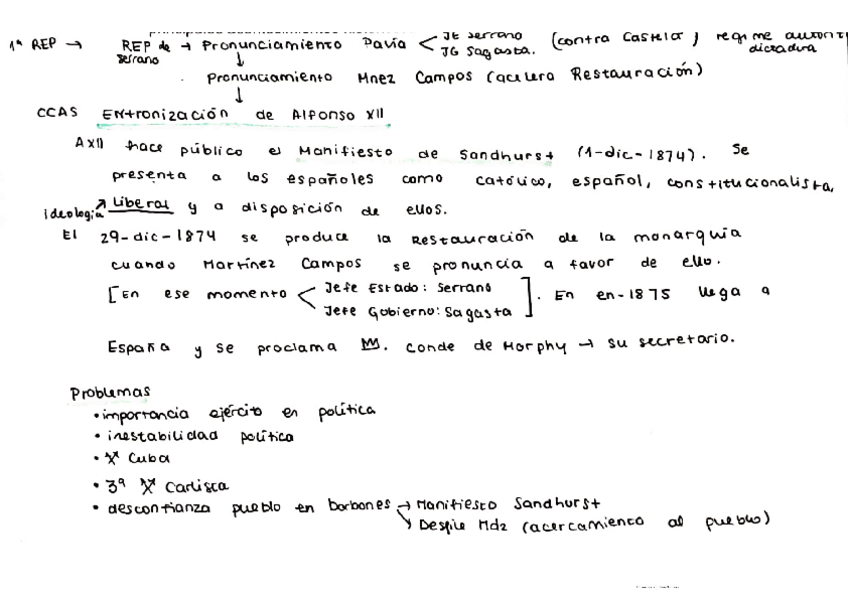 1ª REP → REP de Serrano → Pronunciamiento Pavía < JE Serrano JG Sagasta. (contra Castelar) régimen autorit dictadura
↓
Pronunciamiento Mnez Campos (acelera Restauración)
↓
CCAS Entronización de Alfonso XII
AXII hace público el Manifiesto de Sandhurst (1-dic-1874). Se
presenta a los españoles como católico, español, constitucionalista,
ideología ↗ Liberal y a disposición de ellos.
El 29-dic-1874 se produce la Restauración de la monarquía
cuando Martínez Campos se pronuncia a favor de ello.
[En ese momento < Jefe Estado: Serrano
Jefe Gobierno: Sagasta ]. En en-1875 llega a
España y se proclama. Conde de Morphy → su secretario.
Problemas
• importancia ejército en política
• inestabilidad política
• Cuba
• 3ª Carlista
• desconfianza pueblo en borbones → Manifiesto Sandhurst
↘ Desfile Mdz (acercamiento al pueblo)